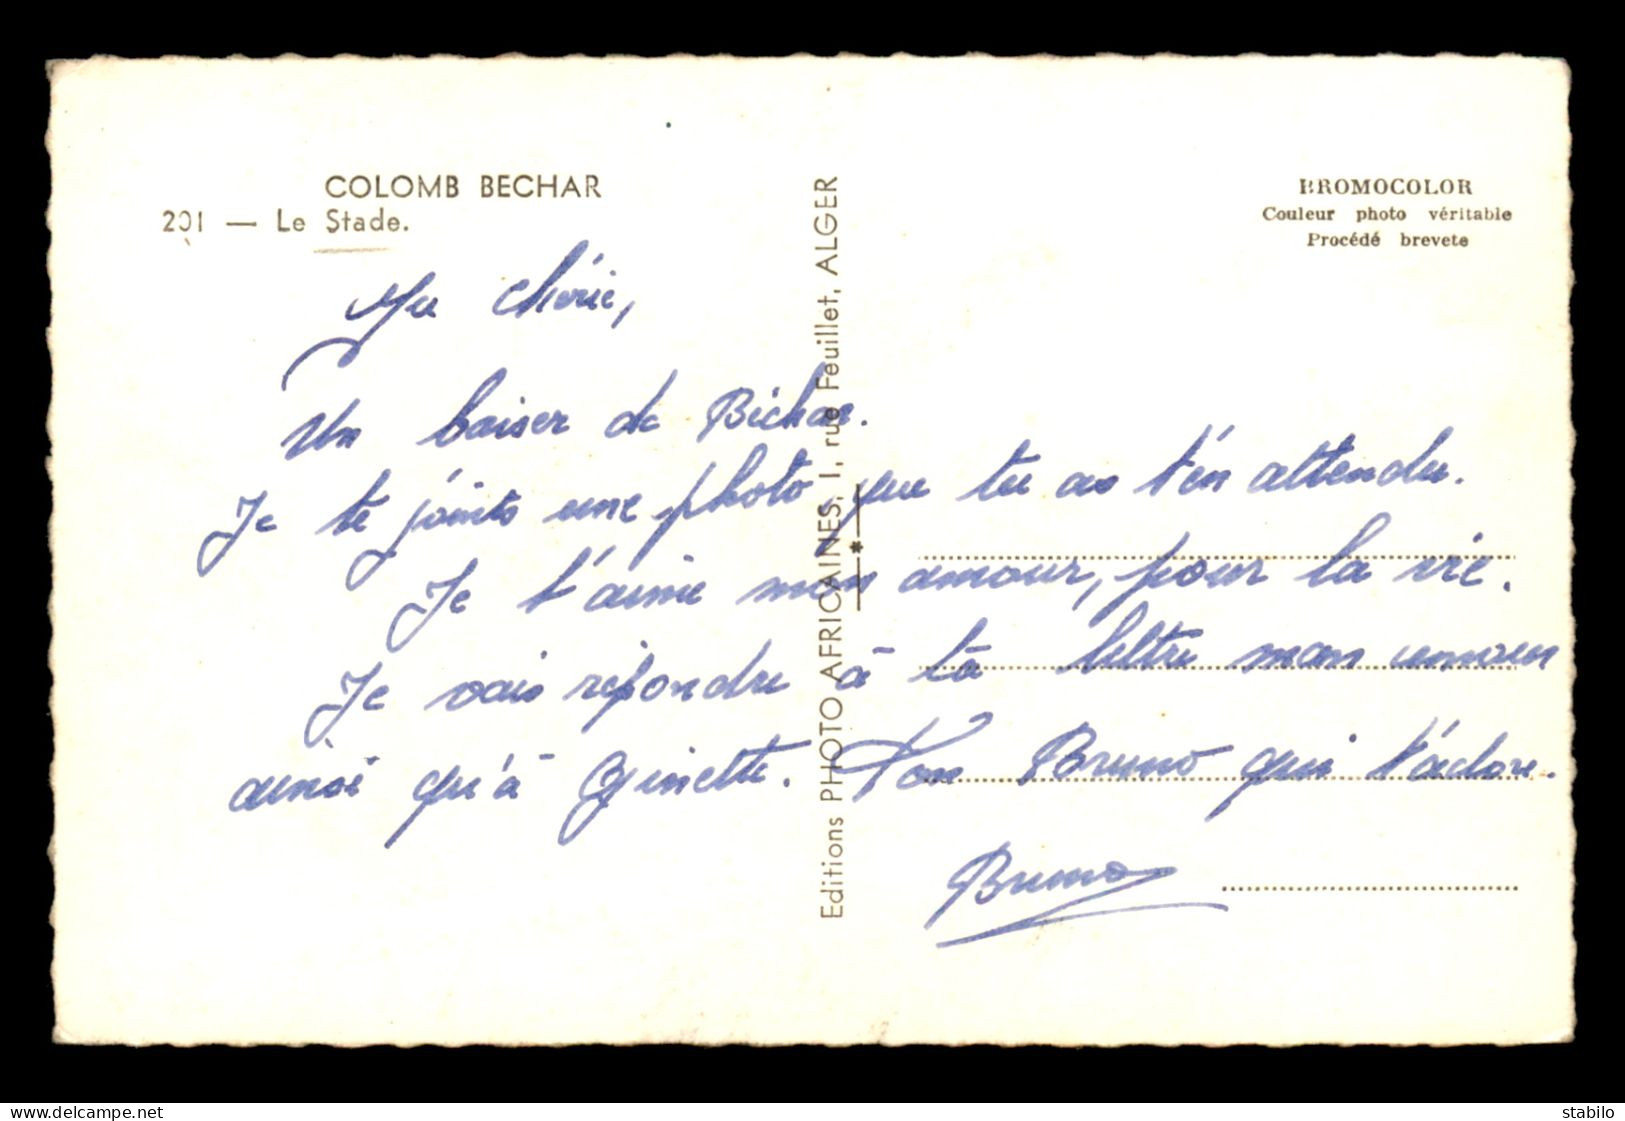 COLOMB BECHAR
201 — Le Stade.
BROMOCOLOR
Couleur photo véritable
Procédé brevete
Editions PHOTO AFRICAINES, 1, rue Feuillet, ALGER
Ma chérie,
Un baiser de Béchar.
Je te joints une photo que tu as t'en attendu.
Je t'aime mon amour, pour la vie.
Je vais répondre à ta lettre mon amour
ainsi qu'à Ginette. Ton Bruno qui t'adore.
Bruno
www.delcampe.net
stabilo